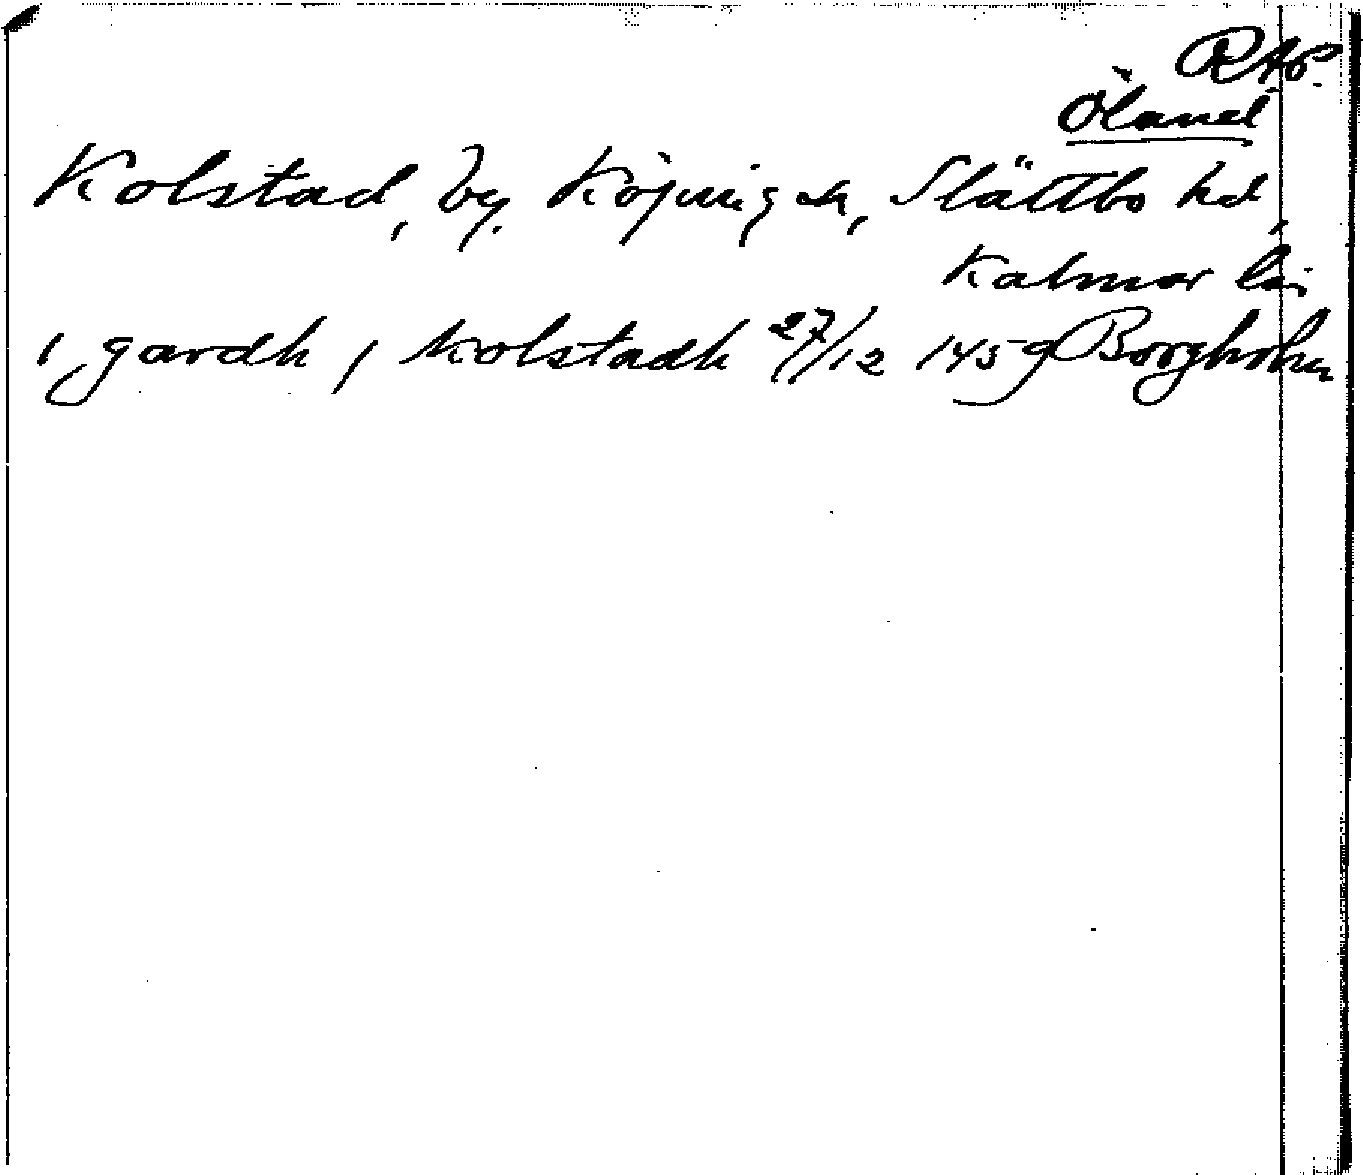 RAp.
Öland
Kolstad, by, Köping sn, Slättbo hd,
Kalmar län
i, gardh j kolstadh 27/12 1459 Borgholm